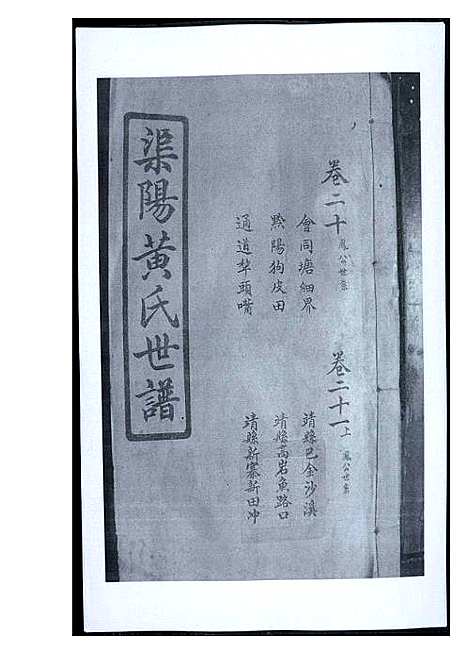 卷二十 鳳公世系
會同塘細界
黔陽狗皮田
通道犂頭嘴
卷二十一上 鳳公世系
靖縣巴金沙溪
靖縣高岩魚路口
靖縣新寨新田冲
渠陽黃氏世譜